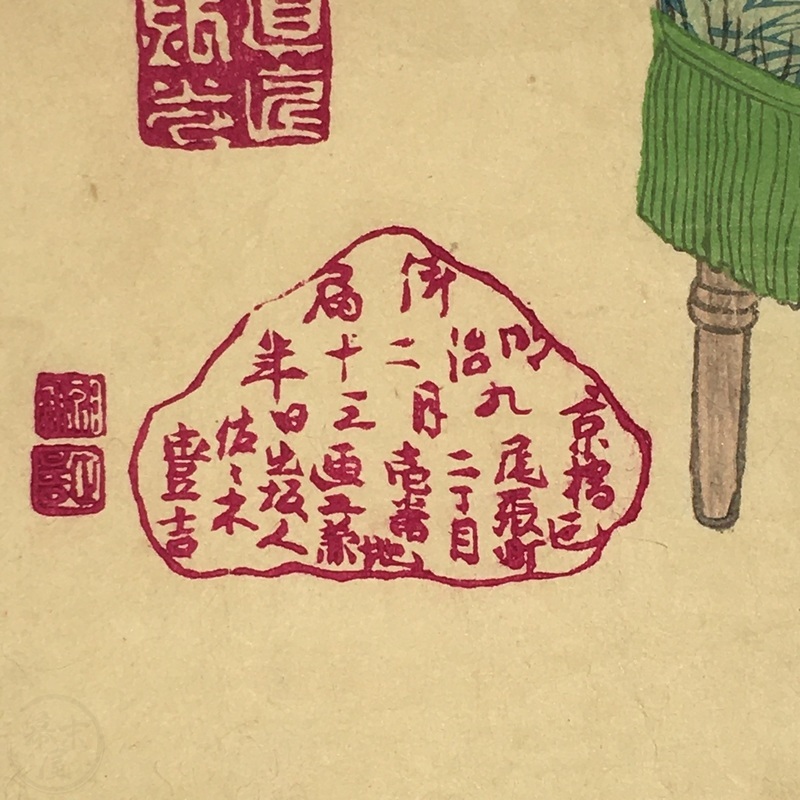 御届
明治二十年
九月三日
京橋区
尾張町
二丁目
壱番地
画工兼
出版人
佐々木
豊吉